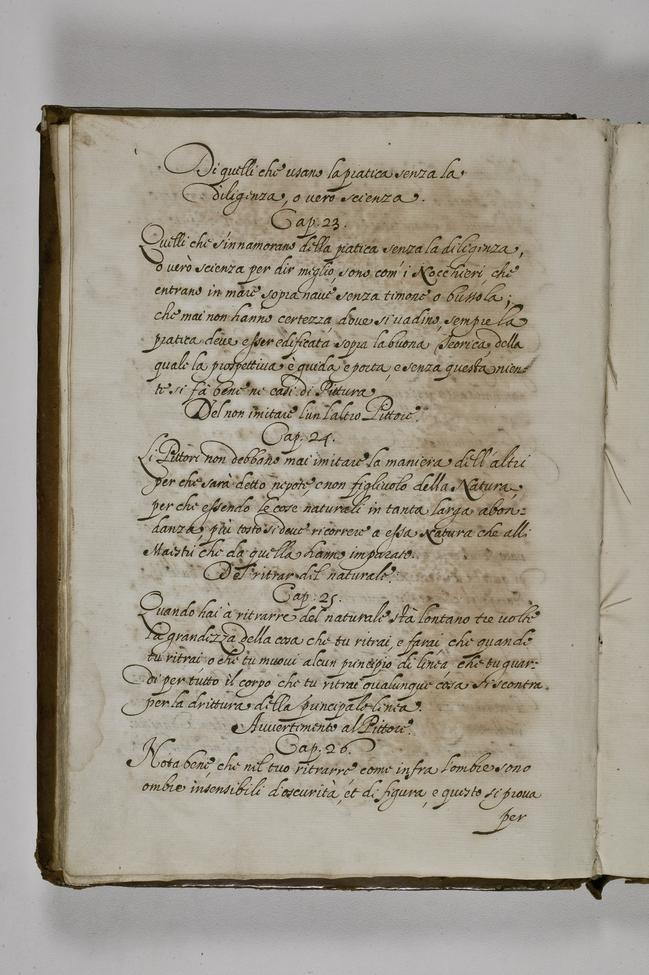 Di quelli che usano la pratica senza la
diligenza, o vero scienza.
Cap. 23.
Quelli che s'innamorano della pratica senza la diligenza,
o vero scienza per dir meglio, sono com' i Nocchieri, che
entrano in mare sopra nave senza timone o bussola;
che mai non hanno certezza dove si vadino, sempre la
pratica deve esser edificata sopra la buona Teorica, della
quale la prospettiva è guida e porta, e senza questa nien-
te si fà bene ne casi di Pittura.
Del non imitare l'un l'altro Pittore.
Cap. 24.
Li Pittori non debbano mai imitare la maniera dell' altri
per che sarà detto nepote, e non figliuolo della Natura,
per che essendo le cose naturali in tanta larga abon-
danza più tosto si deve ricorrere a essa Natura che alli
Maestri che da quella hanno imparato.
Del ritrar del naturale.
Cap. 25.
Quando hai à ritrarre del naturale stà lontano tre volte
la grandezza della cosa che tu ritrai, e farai che quando
tu ritrai o che tu muovi alcun principio di linea, che tu guar-
di per tutto il corpo che tu ritrae qualunque cosa si scontra
per la drittura della principale linea.
Avvertimento al Pittore.
Cap. 26.
Nota bene che nel tuo ritrarre come infra l'ombre sono
ombre insensibili d'oscurità, et di figura, e questo si prova
per